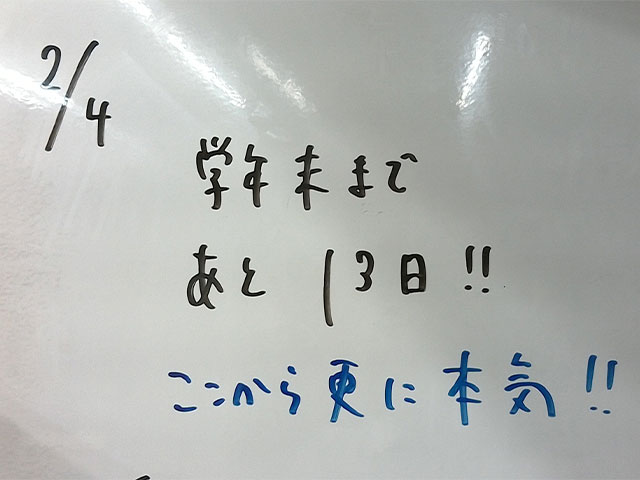 2/4
学年末まで
あと13日!!
ここから更に本気!!